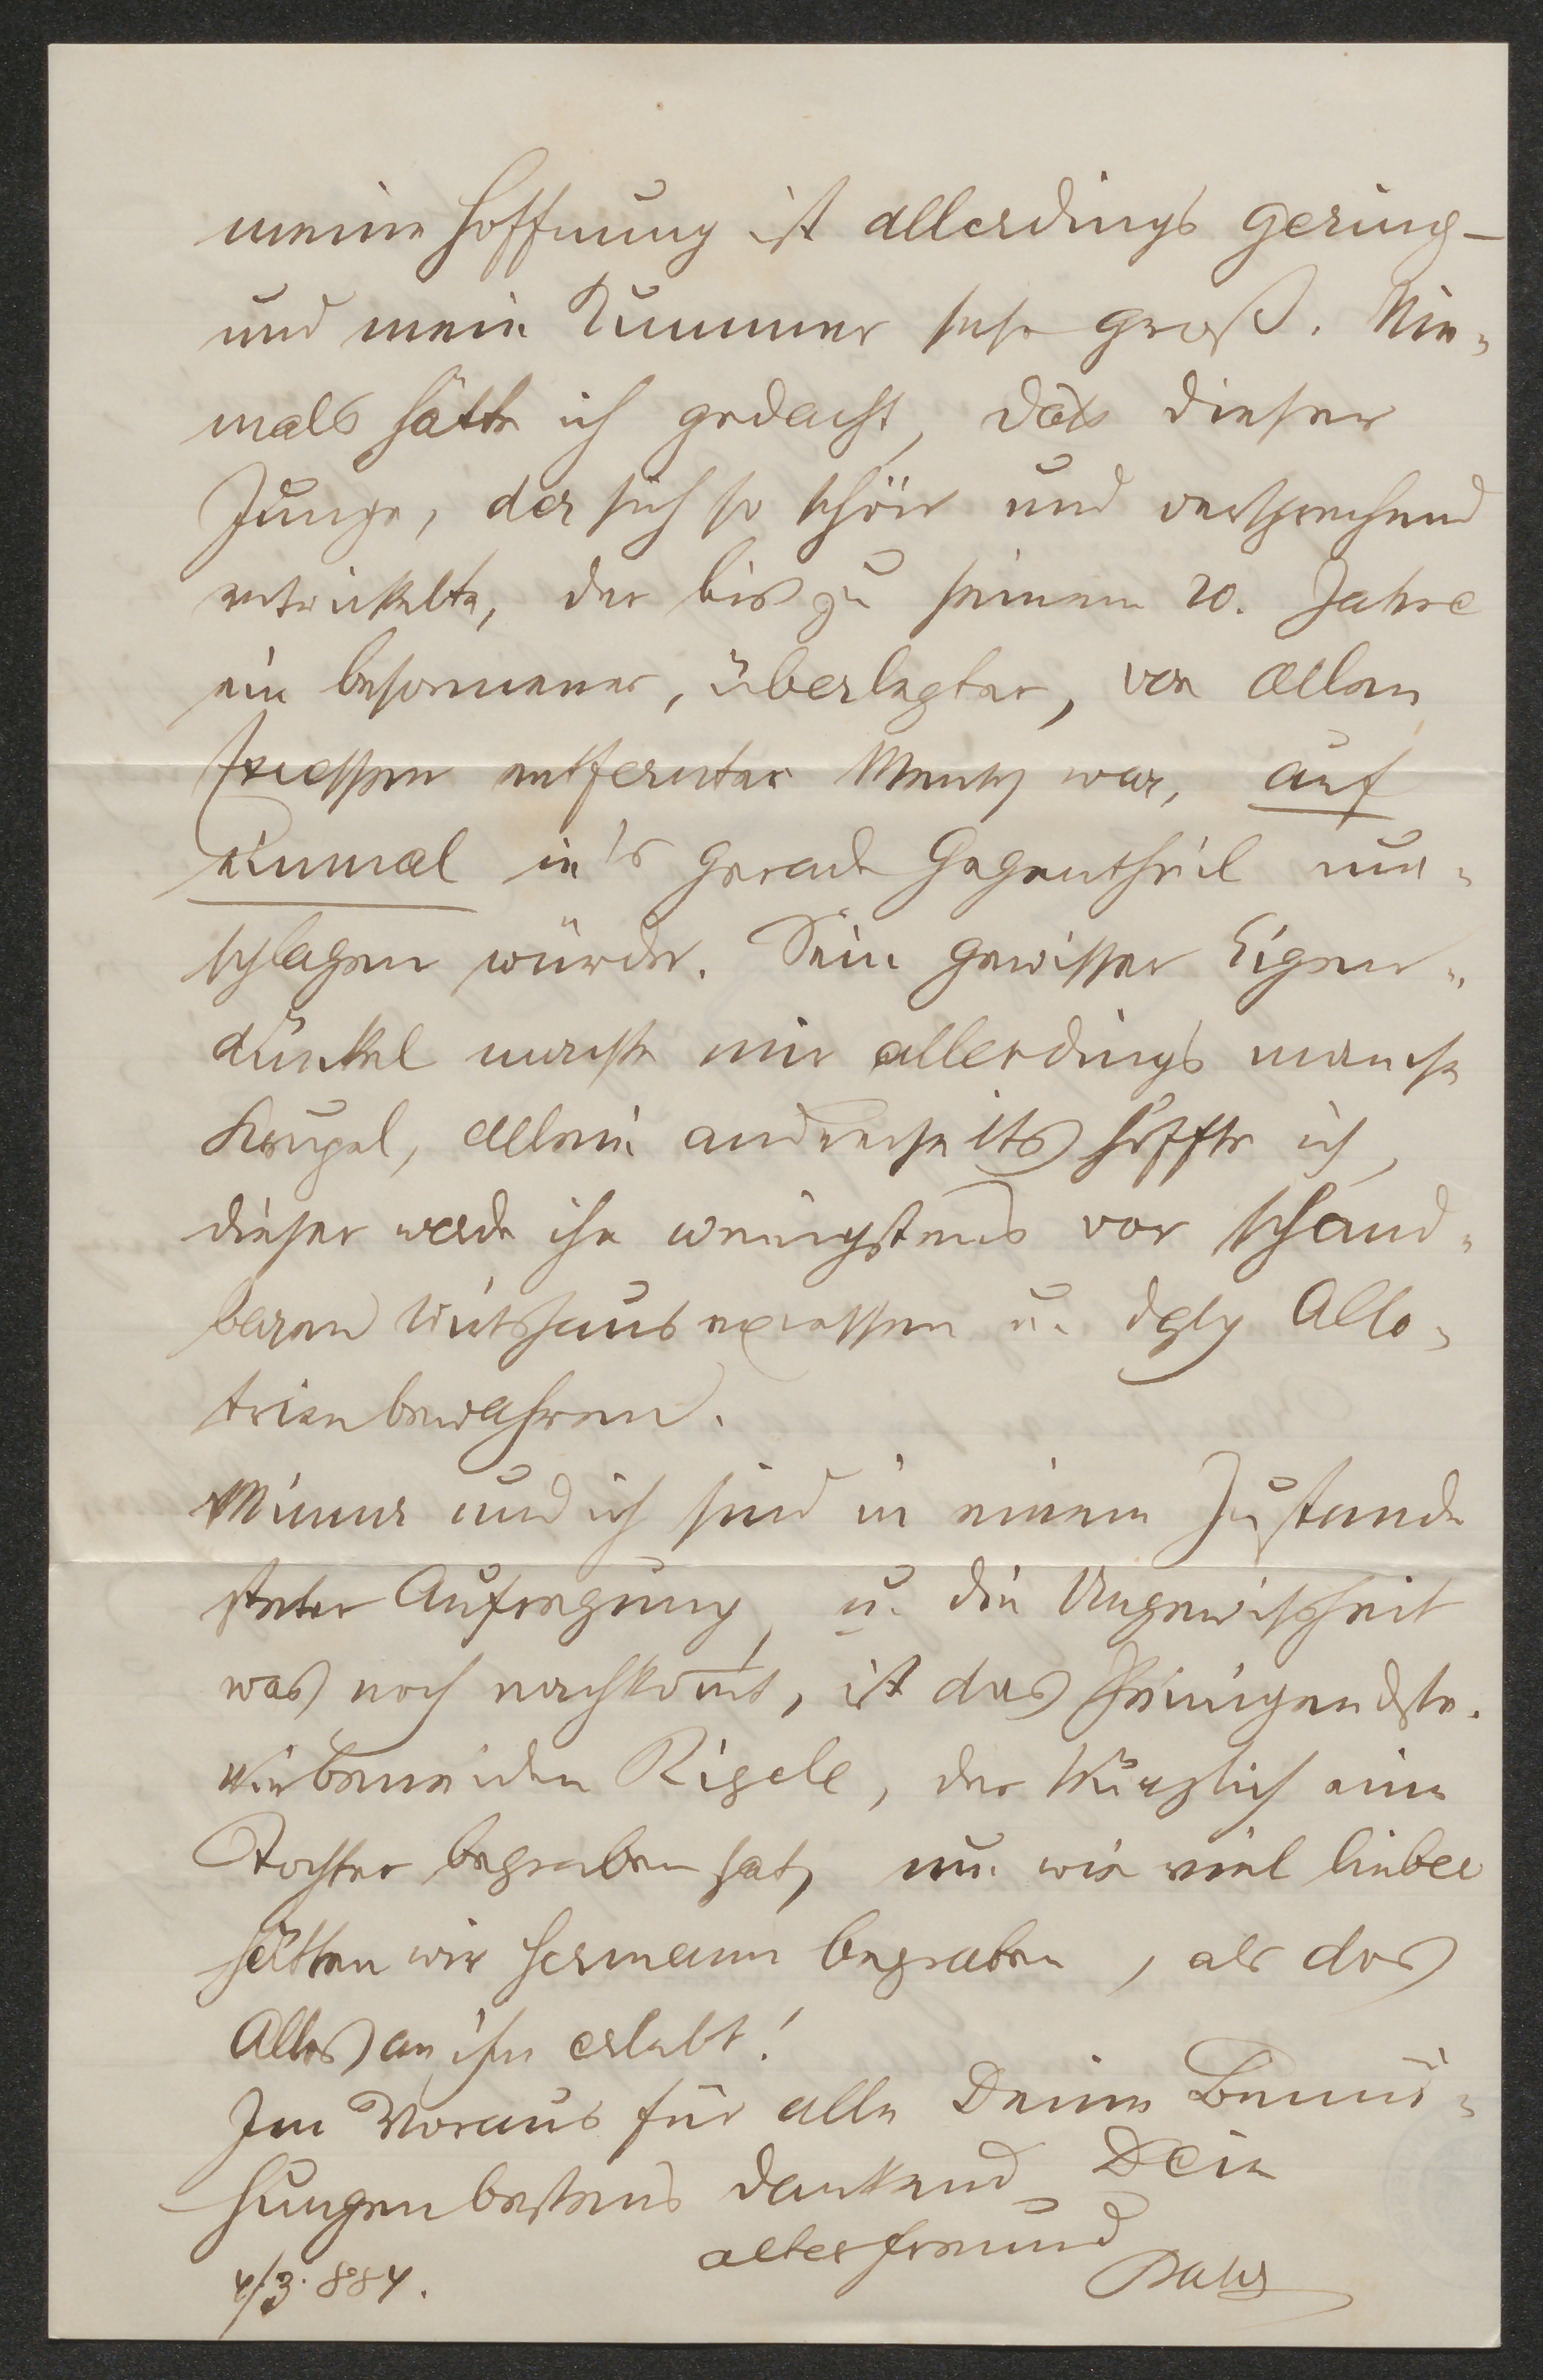 meine Hoffnung ist allerdings gering –
und mein Kummer sehr groß. Nie-
mals hätte ich gedacht, daß dieser
Junge, der sich so schön und versprechend
entwickelte, der bis zu seinem 20. Jahre
ein besonnener, überlegter, von allen
Excessen entfernter Mensch war, auf
einmal in's gerade Gegentheil um-
schlagen würde. Sein gewisser Eigen-
dünkel machte mir allerdings manche
Skrupel, allein andrerseits hoffte ich,
dieser werde ihn wenigstens vor schand-
baren Wirtshausexcessen u. dglch Allo-
trien bewahren.
Minna und ich sind in einem Zustande
steter Aufregung, u. die Ungewißheit
was noch nachkom̅t, ist das Peinigendste.
Wir beneiden Rigele, der kürzlich eine
Tochter begraben hat, u. wie viel lieber
hätten wir Hermann begraben, als das
Alles an ihm erlebt!
Im Voraus für alle Deine Bemü-
hungen bestens dankend Dein
alter Freund
4/3. 884. Bahr